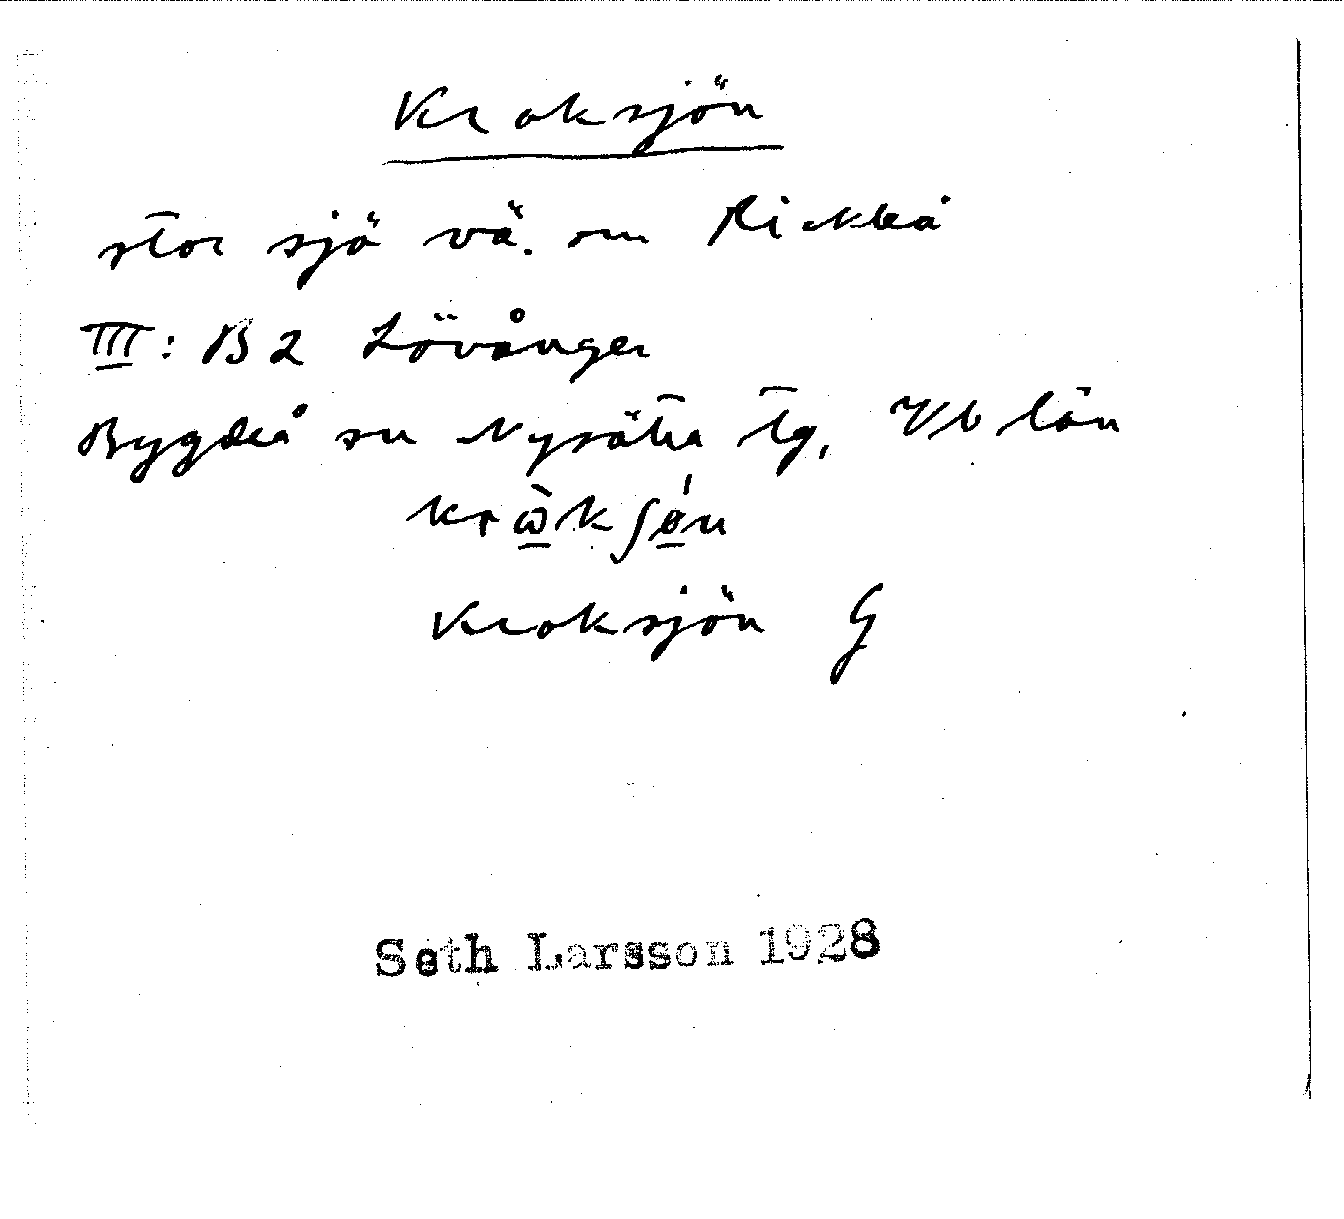 Kroksjön
stor sjö vä. om Rickleå
III: B2 Lövånger
Bygdeå sn Nysätra tg, Vb län
krὼ̲kʃǿ̲n
Kroksjön G
Seth Larsson 1928